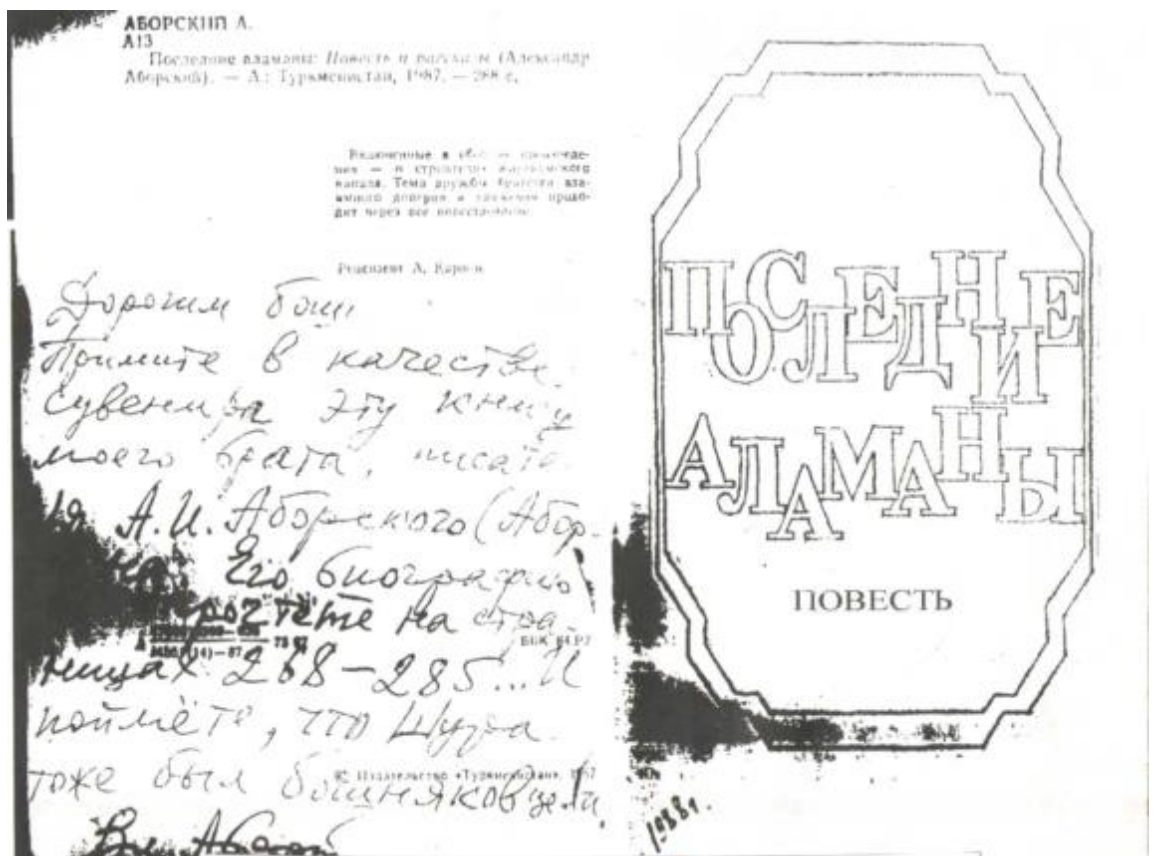 АБОРСКИЙ А.
А13
Последние аламаны: Повесть и рассказы (Александр
Аборский). — А.: Туркменистан, 1987. — 288 с.
Включенные в
— о строителях Каракумского
канала. Тема дружбы братства вза-
имного доверия и уважения прохо-
дит через все повествование.
Рецензент А.
Дорогим
Примите в качестве
сувенира эту книгу
моего брата,
А.И. Аборского (Абор-
Его биографию
прочтёте на стра-
ницах 268–285... И
поймёте, что Шура
тоже был бошняковцем.
ББК 84.Р7
© Издательство «Туркменистан», 1987
ПОСЛЕДНИЕ
АЛАМАНЫ
ПОВЕСТЬ
1988г.